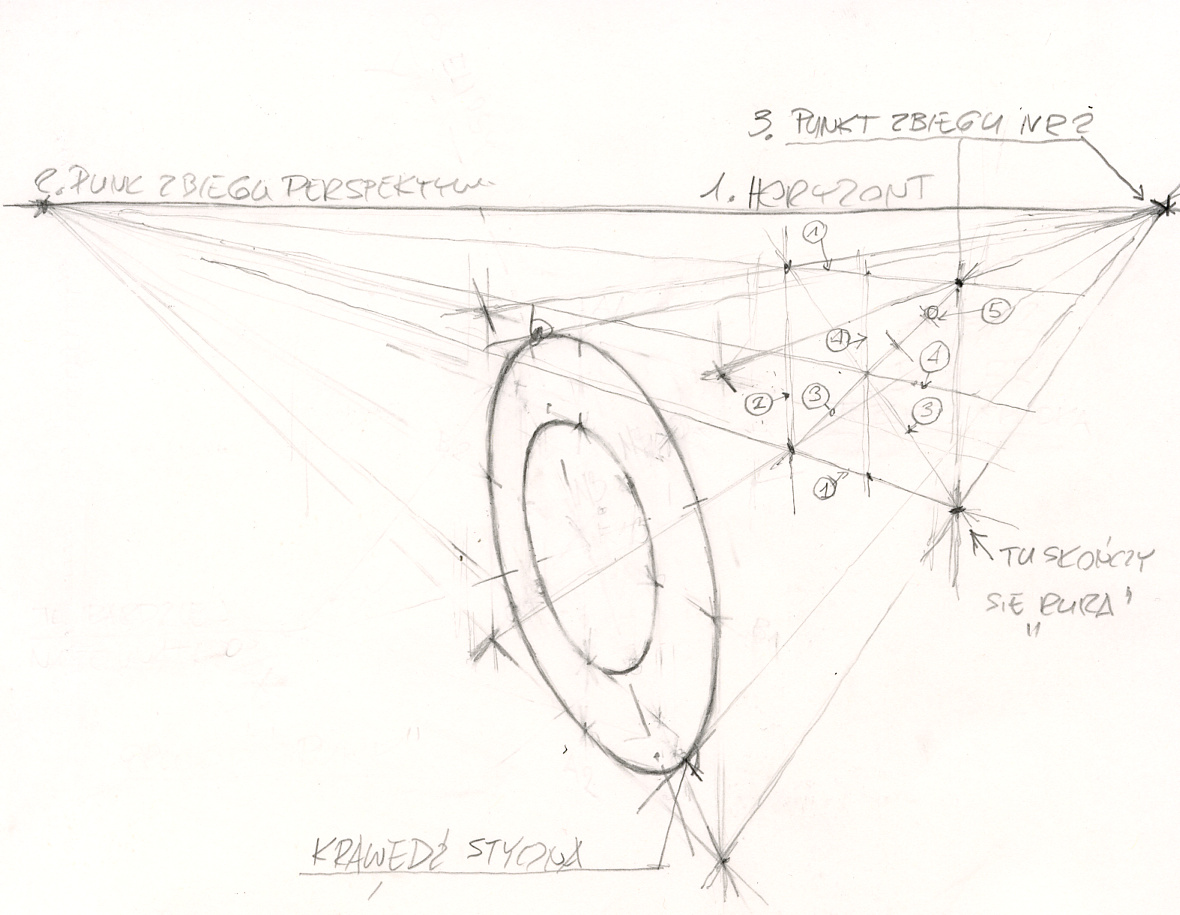 3. PUNKT ZBIEGU NR 2
2. PUNK ZBIEGU PERSPEKTYW
1. HORYZONT
1
5
4
4
2
3
3
1
TU SKOŃCZY
SIĘ RURA"
KRAWĘDŹ STYCZNA